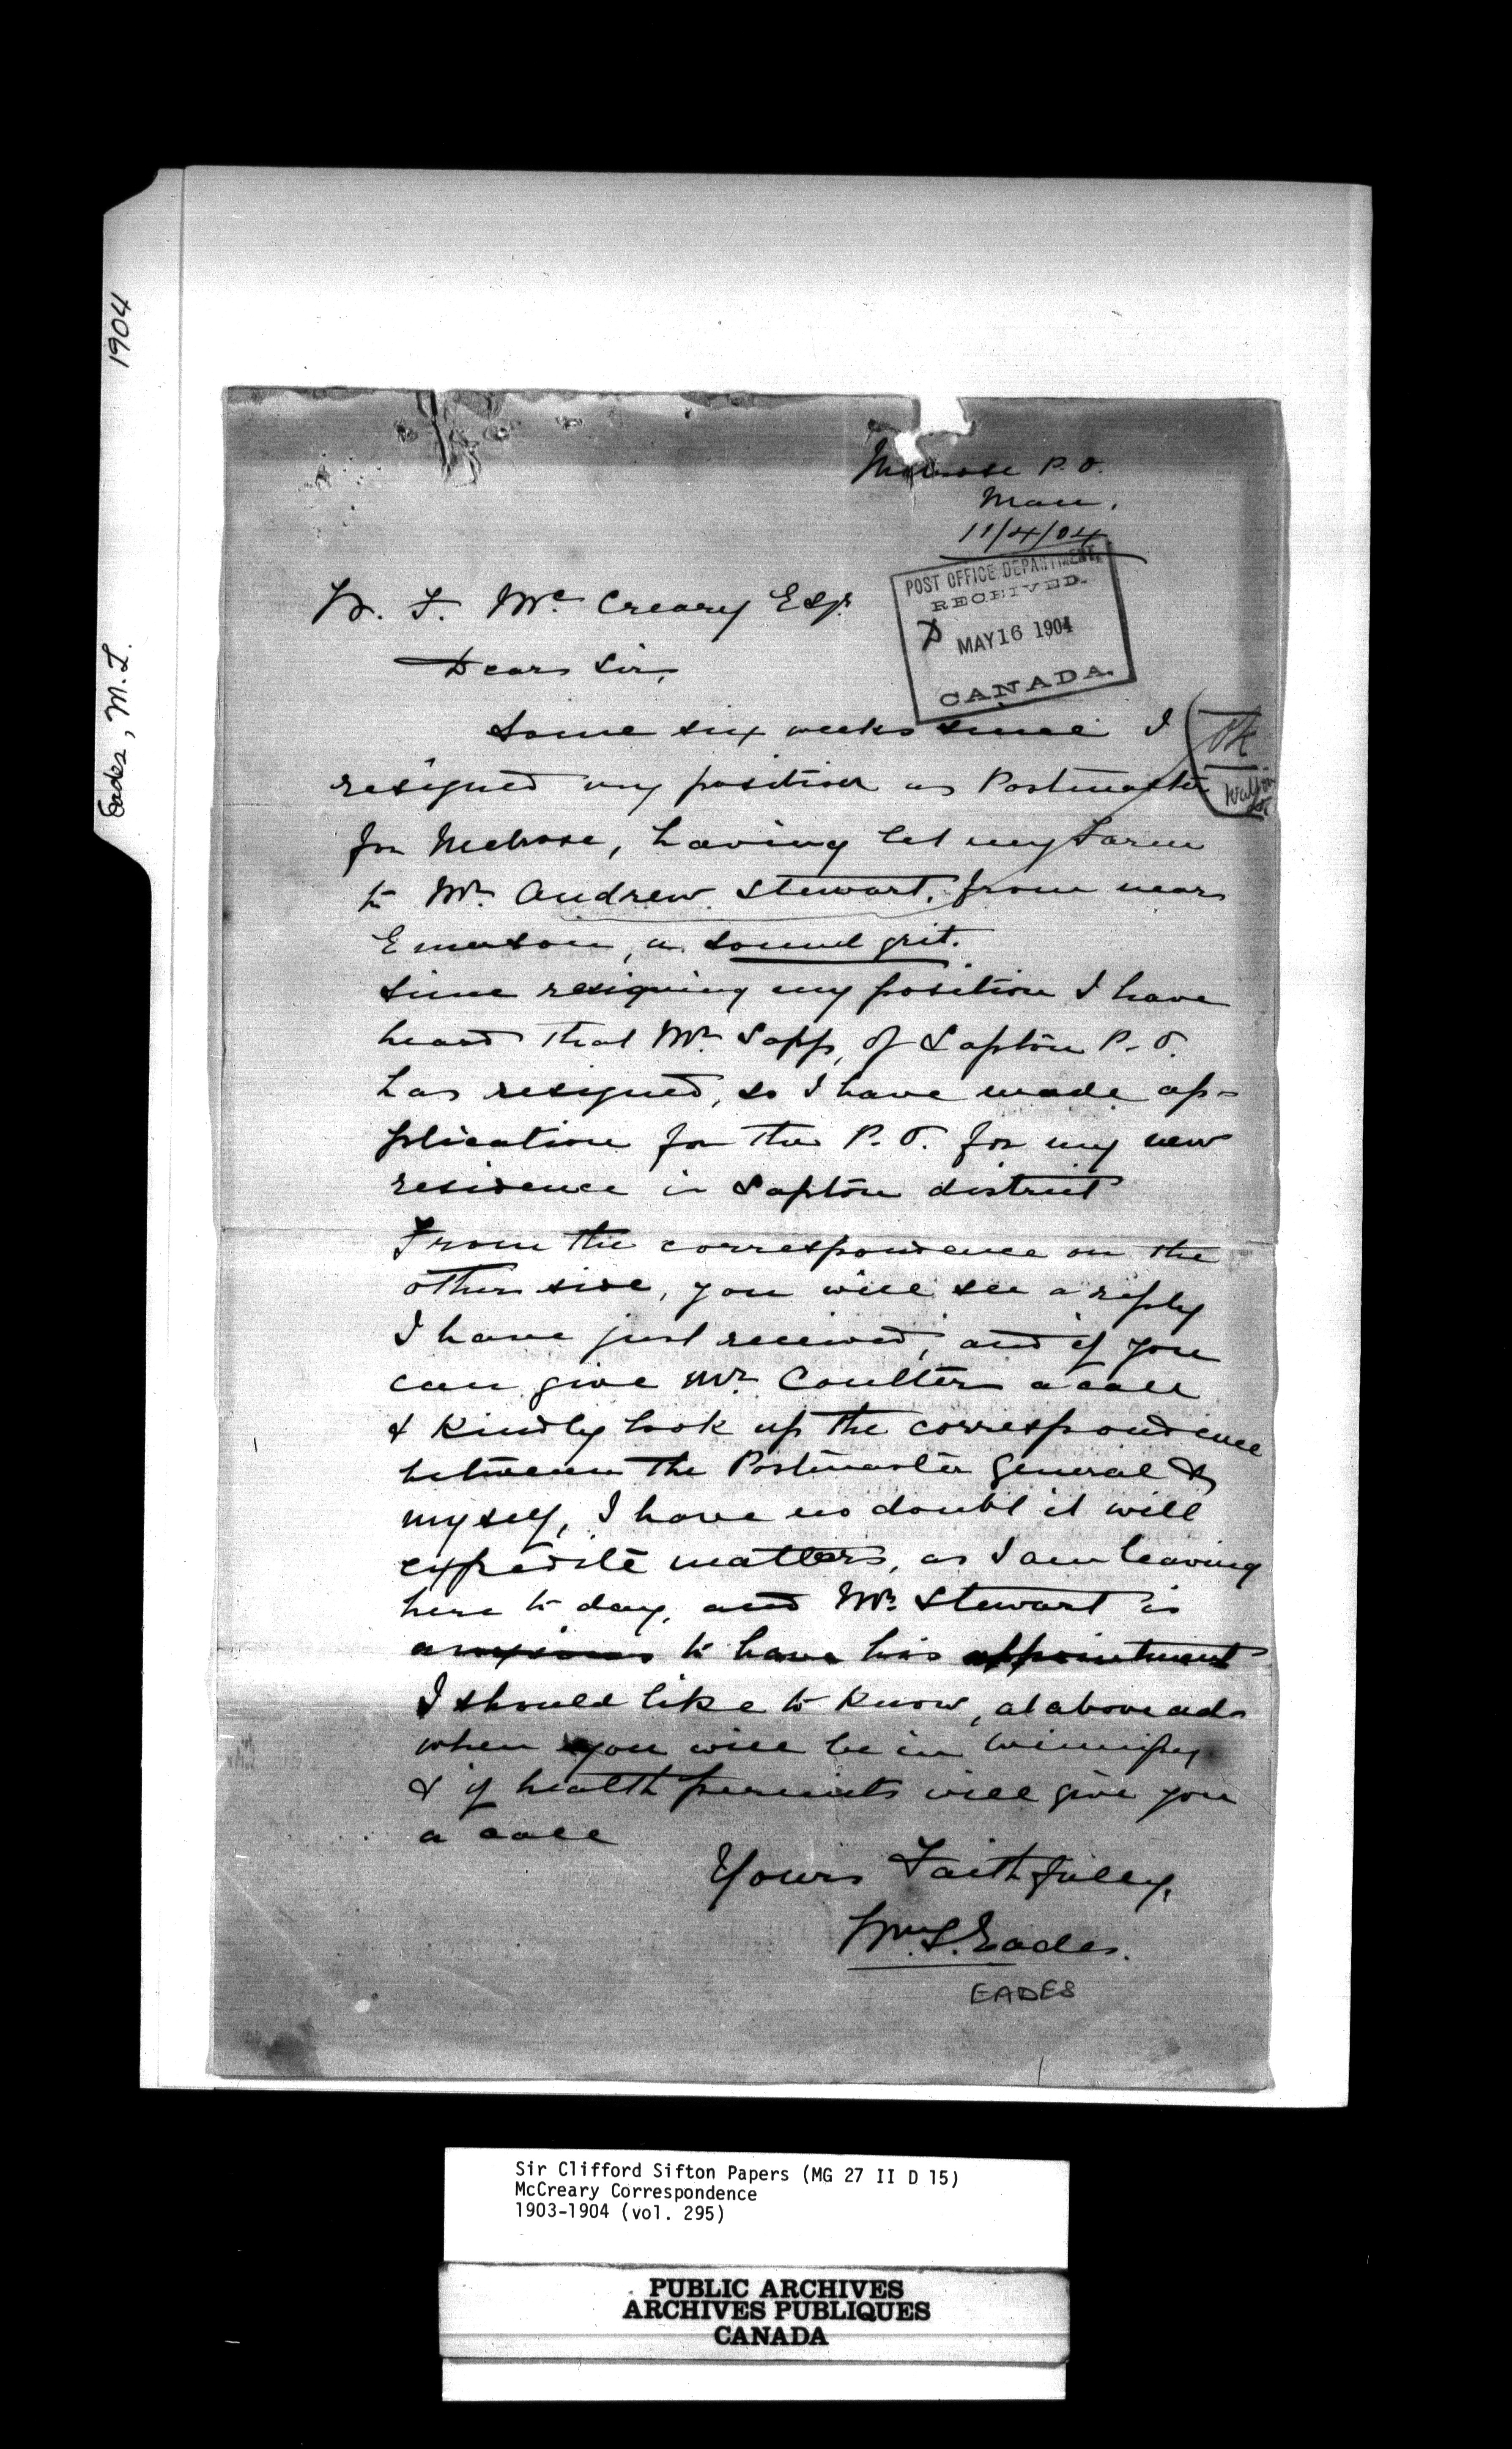 1904
Eades, M. L.
Melrose P. O.
Man.
11/4/04
POST OFFICE DEPARTMENT,
RECEIVED.
MAY 16 1904
CANADA.
W. F. Mc Creary Esqr.
Dear Sir,
Some six weeks since I
resigned my position as Postmaster
for Melrose, having let my Farm
to Mr. Andrew Stewart, from near
Emerson, a sound grit.
Since resigning my position I have
heard that Mr. Sapp, of Sapton P. O.
has resigned, so I have made ap-
plication for the P. O. for my new
residence in Sapton district
From the correspondence on the
other side, you will see a reply
I have just received, and if you
can give Mr. Coulter a call
& Kindly look up the correspondence
between the Postmaster General &
myself, I have no doubt it will
expedite matters, as I am leaving
here to day, and Mr. Stewart is
anxious to have his appointment
I should like to Know, at above ads
when you will be in Winnipeg
& if health permits will give you
a call
Yours Faithfully,
Wm. S. Eades.
EADES
Sir Clifford Sifton Papers (MG 27 II D 15)
McCreary Correspondence
1903-1904 (vol. 295)
PUBLIC ARCHIVES
ARCHIVES PUBLIQUES
CANADA